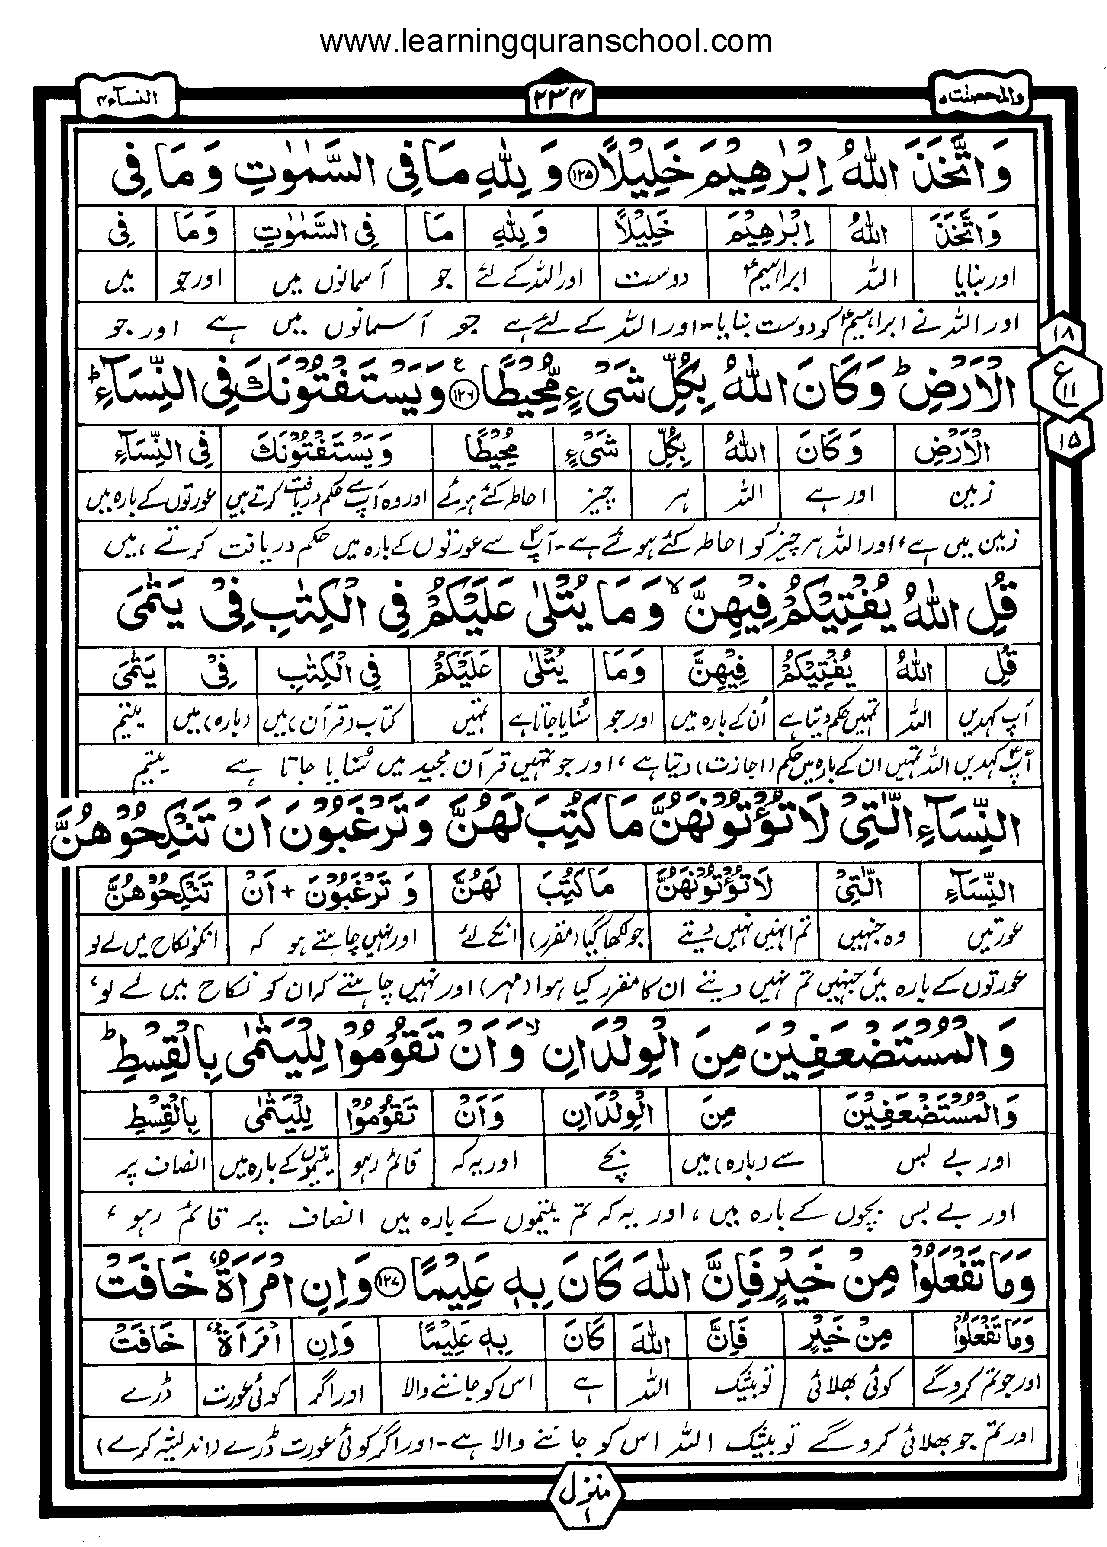 www.learningquranschool.com
والمحصنت ۵ ۲۳۴ النسآء ۴
وَاتَّخَذَ اللّٰهُ اِبْرٰهِيْمَ خَلِيْلًا ۝۱۲۵ وَ لِلّٰهِ مَا فِی السَّمٰوٰتِ وَ مَا فِی
وَاتَّخَذَ اللّٰهُ اِبْرٰهِيْمَ خَلِيْلًا وَ لِلّٰهِ مَا فِی السَّمٰوٰتِ وَمَا فِی
اور بنایا اللہ ابراہیمؑ دوست اور اللہ کے لئے جو آسمانوں میں اور جو میں
اور اللہ نے ابراہیمؑ کو دوست بنایا۔ اور اللہ کے لئے ہے جو آسمانوں میں ہے اور جو
۱۸
الْاَرْضِ ؕ وَ كَانَ اللّٰهُ بِكُلِّ شَیْءٍ مُّحِيْطًا ۝۱۲۶ ع وَيَسْتَفْتُوْنَكَ فِی النِّسَآءِ ؕ
ع ۱۱
الْاَرْضِ وَ كَانَ اللّٰهُ بِكُلِّ شَیْءٍ مُّحِيْطًا وَيَسْتَفْتُوْنَكَ فِی النِّسَآءِ
۱۵
زمین اور ہے اللہ ہر چیز احاطہ کئے ہوئے اور وہ آپ سے حکم دریافت کرتے ہیں عورتوں کے بارہ میں
زمین میں ہے، اور اللہ ہر چیز کو احاطہ کئے ہوئے ہے۔ آپؐ سے عورتوں کے بارہ میں حکم دریافت کرتے ہیں
قُلِ اللّٰهُ يُفْتِيْكُمْ فِيْهِنَّ ۙ وَ مَا يُتْلٰى عَلَيْكُمْ فِی الْكِتٰبِ فِیْ يَتٰمَى
قُلِ اللّٰهُ يُفْتِيْكُمْ فِيْهِنَّ وَمَا يُتْلٰى عَلَيْكُمْ فِی الْكِتٰبِ فِیْ يَتٰمَى
آپ کہدیں اللہ تمہیں حکم دیتا ہے اُن کے بارہ میں اور جو سُنایا جاتا ہے تمہیں کتاب (قرآن) میں (بارہ) میں یتیم
آپؐ کہدیں اللہ تمہیں ان کے بارہ میں حکم (اجازت) دیتا ہے، اور جو تمہیں قرآن مجید میں سُنایا جاتا ہے یتیم
النِّسَآءِ الّٰتِیْ لَا تُؤْتُوْنَهُنَّ مَا كُتِبَ لَهُنَّ وَ تَرْغَبُوْنَ اَنْ تَنْكِحُوْهُنَّ
النِّسَآءِ الّٰتِیْ لَا تُؤْتُوْنَهُنَّ مَا كُتِبَ لَهُنَّ وَ تَرْغَبُوْنَ + اَنْ تَنْكِحُوْهُنَّ
عورتیں وہ جنہیں تم انہیں نہیں دیتے جو لکھا گیا (مقرر) انکے لئے اور نہیں چاہتے ہو کہ انکو نکاح میں لے لو
عورتوں کے بارہ میں جنہیں تم نہیں دیتے ان کا مقرر کیا ہوا (مہر) اور نہیں چاہتے کہ ان کو نکاح میں لے لو،
وَالْمُسْتَضْعَفِيْنَ مِنَ الْوِلْدَانِ ۙ وَ اَنْ تَقُوْمُوْا لِلْيَتٰمٰى بِالْقِسْطِ ؕ
وَالْمُسْتَضْعَفِيْنَ مِنَ الْوِلْدَانِ وَ اَنْ تَقُوْمُوْا لِلْيَتٰمٰى بِالْقِسْطِ
اور بے بس سے (بارہ) میں بچے اور یہ کہ قائم رہو یتیموں کے بارہ میں انصاف پر
اور بے بس بچوں کے بارہ میں، اور یہ کہ تم یتیموں کے بارہ میں انصاف پر قائم رہو،
وَمَا تَفْعَلُوْا مِنْ خَيْرٍ فَاِنَّ اللّٰهَ كَانَ بِهٖ عَلِيْمًا ۝۱۲۷ وَاِنِ امْرَاَةٌ خَافَتْ
وَمَا تَفْعَلُوْا مِنْ خَيْرٍ فَاِنَّ اللّٰهَ كَانَ بِهٖ عَلِيْمًا وَاِنِ امْرَاَةٌ خَافَتْ
اور جو تم کرو گے کوئی بھلائی تو بیشک اللہ ہے اس کو جاننے والا اور اگر کوئی عورت ڈرے
اور تم جو بھلائی کرو گے تو بیشک اللہ اس کو جاننے والا ہے۔ اور اگر کوئی عورت ڈرے (اندیشہ کرے)
منزل ۱